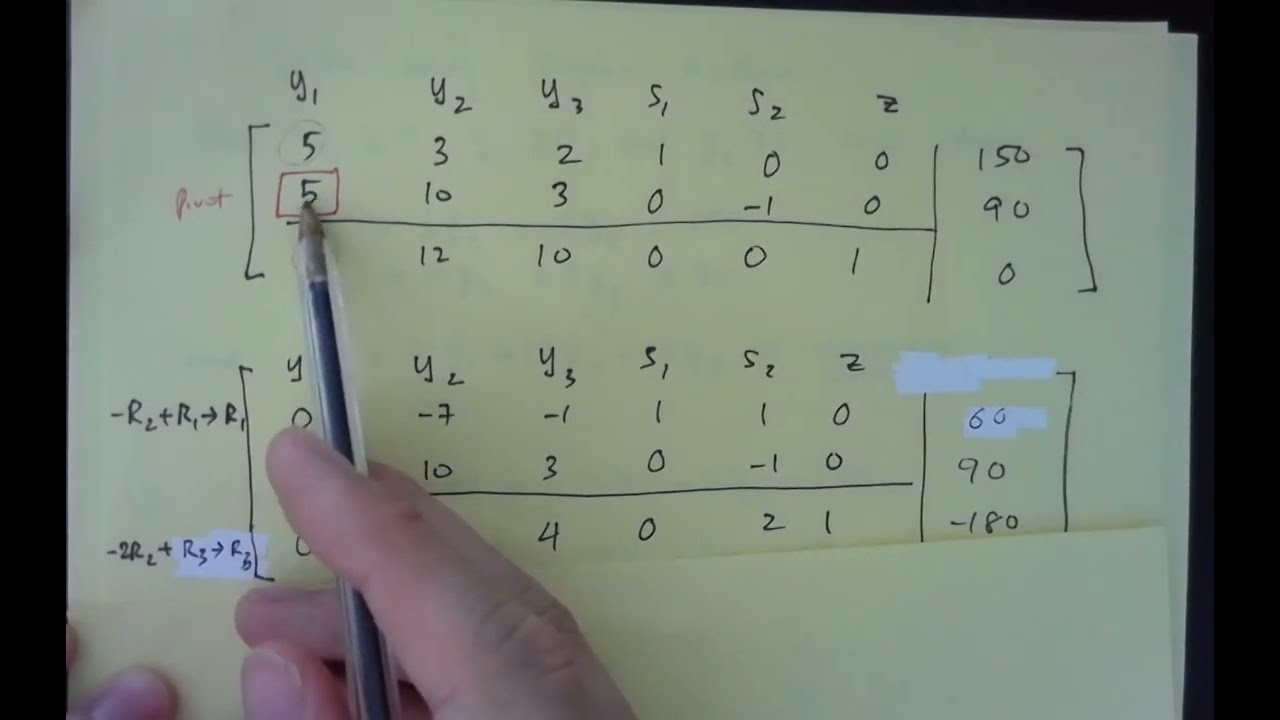 y₁ y₂ y₃ s₁ s₂ z
5 3 2 1 0 0 150
pivot 5 10 3 0 -1 0 90
12 10 0 0 1 0
y y₂ y₃ s₁ s₂ z
-R₂+R₁→R₁ 0 -7 -1 1 1 0 60
10 3 0 -1 0 90
-2R₂+R₃→R₃ 0 4 0 2 1 -180